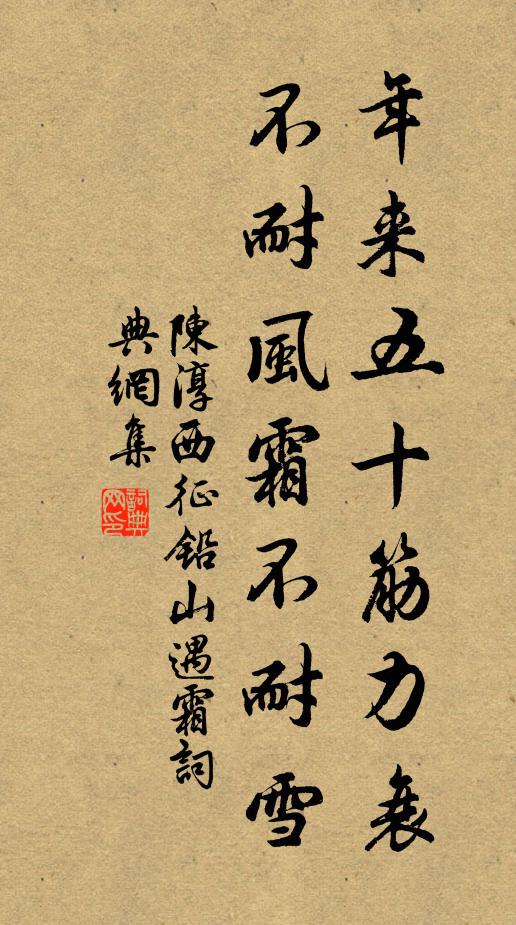 年来五十筋力衰
不耐風霜不耐雪
陳淳西征鉛山遇霜詞
典網集
詞典網印